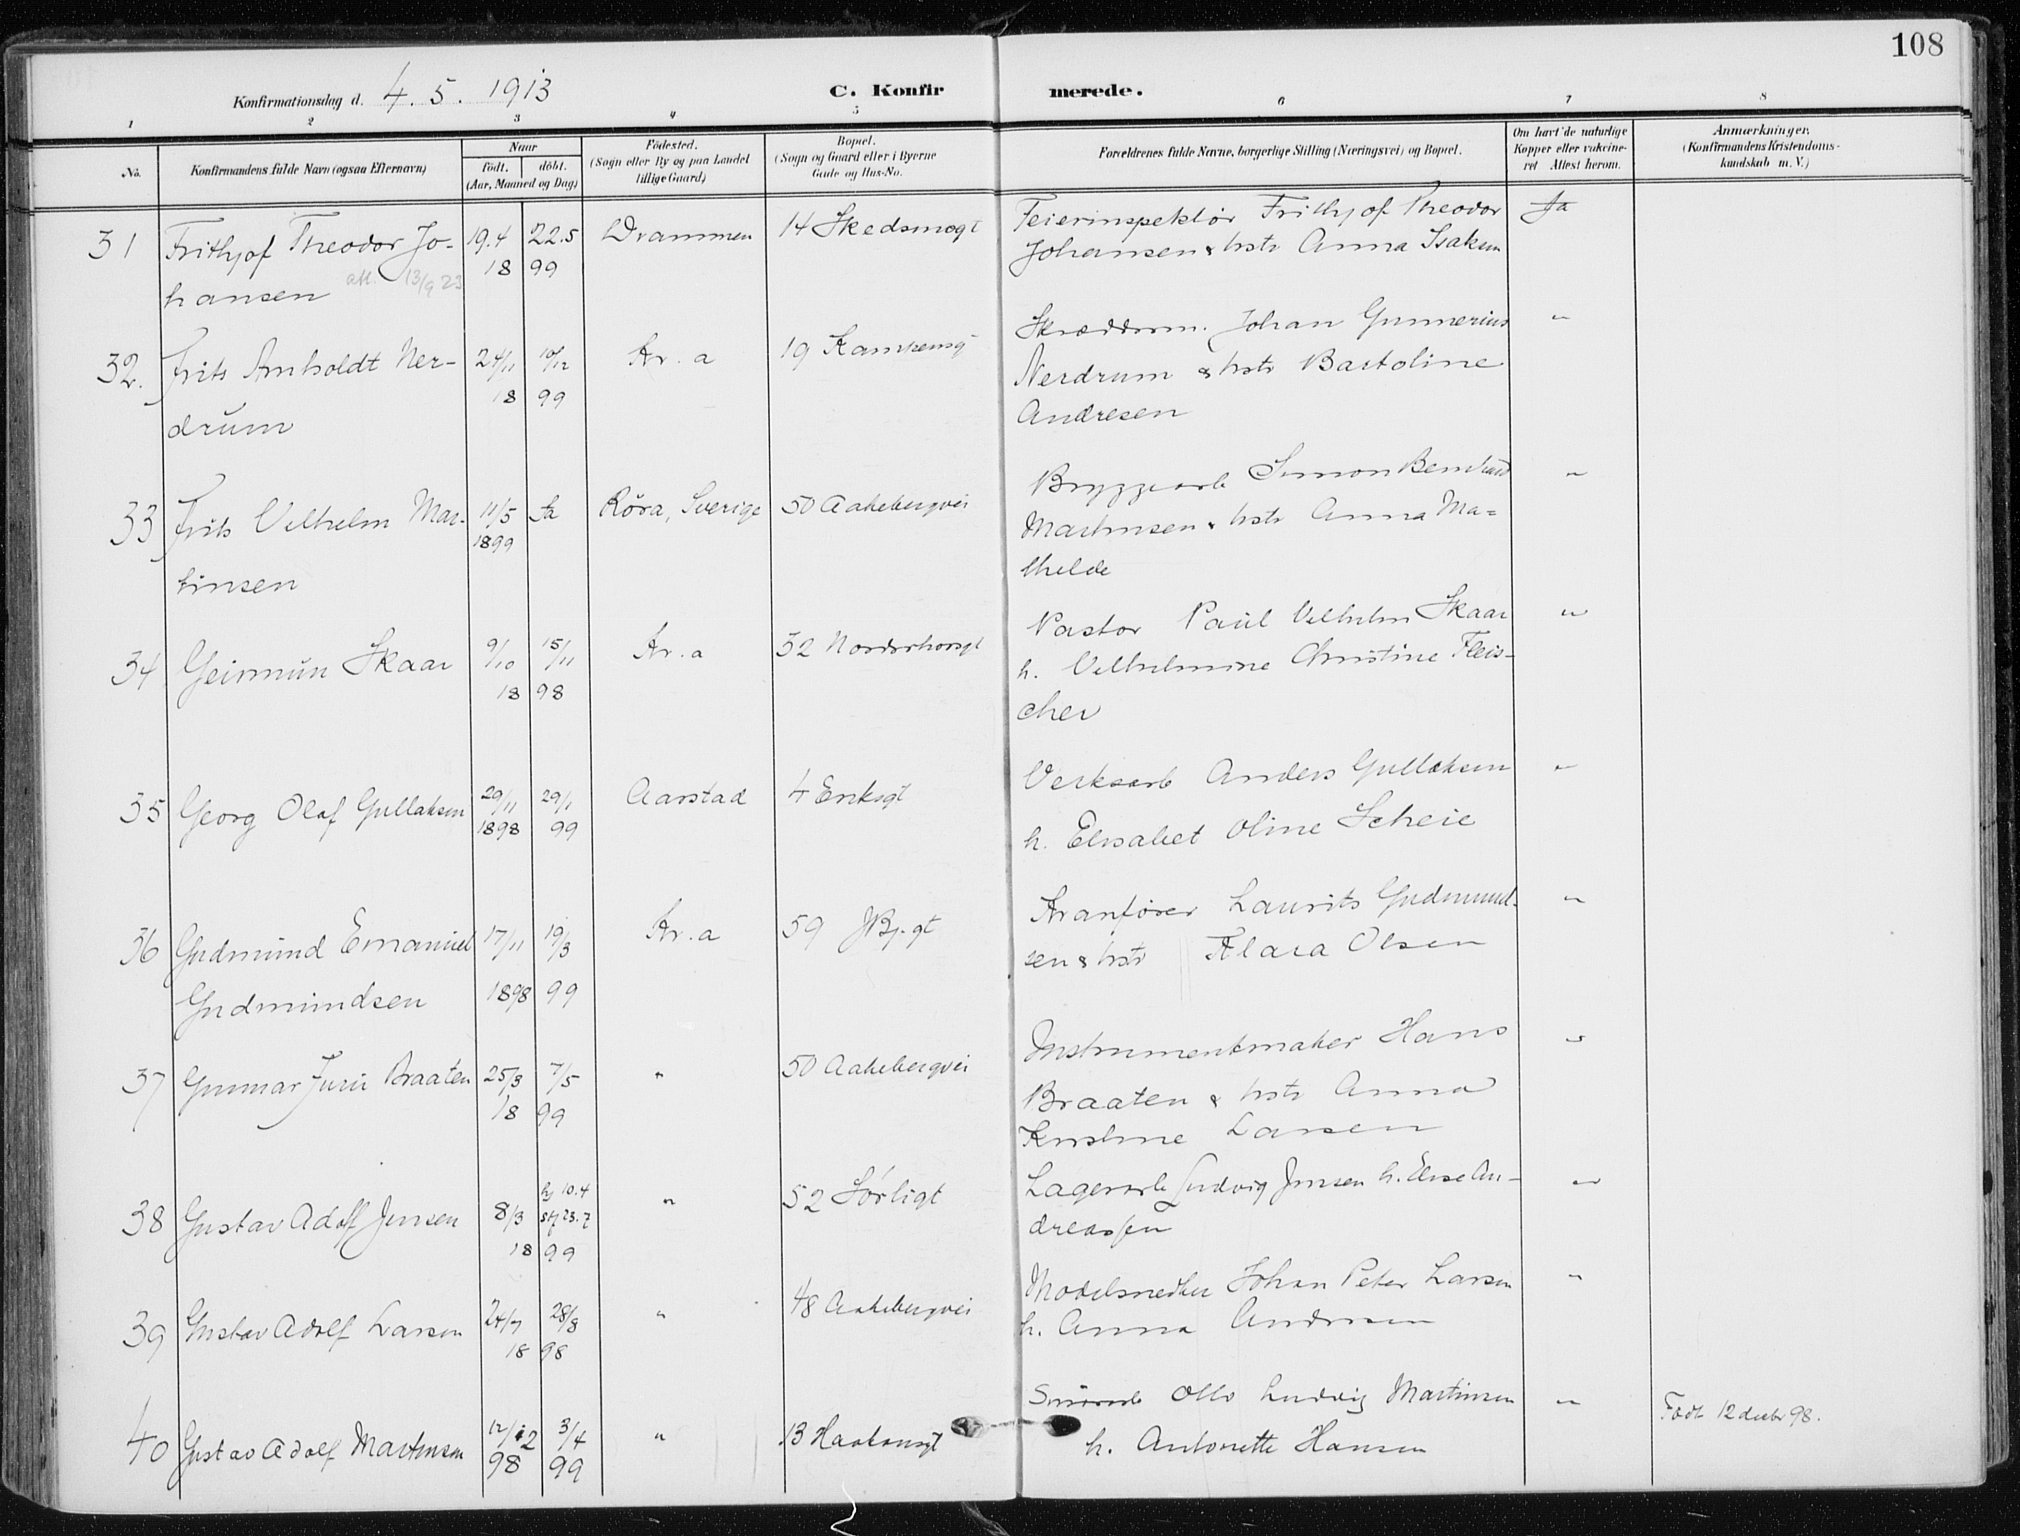 108
Konfirmationsdag d. 4. 5. 1913
C. Konfirmerede.
1 2 3 4 5 6 7 8
No.
Konfirmandens fulde Navn (ogsaa Efternavn)
Naar
født. døbt.
(Aar, Maaned og Dag)
Fødested.
(Sogn eller By og paa Landet
tillige Gaard)
Bopæl.
(Sogn og Gaard eller i Byerne
Gade og Hus-No.
Forældrenes fulde Navne, borgerlige Stilling (Næringsvei) og Bopæl.
Om havt de naturlige
Kopper eller vakcine-
ret Attest herom.
Anmærkninger.
(Konfirmandens Kristendoms-
kundskab m. V.)
31 Frithjof Theodor Jo- 19.4 22.5 Drammen 14 Skedsmogt Feierinspektør Frithjof Theodor Ja
hansen att. 13/9 23 18 99 Johansen & hstr Anna Isaksen
32. Frits Arnholdt Ner- 24/11 10/12 Kr.a 19 Kampensg Skræderm. Johan Gunnerius "
drum 18 99 Nerdrum & hstr Bastoline
Andresen
33 Frits Vilhelm Mar- 11/5 Ja Røra, Sverige 50 Aakebergvei Bryggearb Simon Bernhard "
tinsen 1899 Martinsen & hstr Anna Ma-
thilde
34 Geirmun Skaar 9/10 15/11 Kr.a 32 Nordahlbrunsgt Pastor Paul Vilhelm Skaar "
18 98 h. Vilhelmine Christine Fleis-
cher
35 Georg Olaf Gullaksen 29/11 29/1 Aarstad 4 Eriksgt Verksarb Anders Gullaksen "
1898 99 h. Elisabet Oline Scheie
36 Gudmund Emanuel 17/11 19/3 Kr.a 59 JBj.gt Kranfører Laurits Gudmund- "
Gudmundsen 1898 99 sen & hstr Klara Olsen
37 Gunnar Juri Braaten 25/3 7/5 " 50 Aakebergvei Instrumentmaker Hans "
18 99 Braaten & hstr Anna
Kristine Larsen
38 Gustav Adolf Jensen 8/3 hj 10.4 " 52 Sørligt Lagerarb Ludvig Jensen h. Elise An- "
stf 23.7
18 99 dreassen
39 Gustav Adolf Larsen 24/7 28/8 " 48 Aakebergvei Modelsnedker Johan Peter Larsen "
18 98 h. Anna Andresen
40 Gustav Adolf Martinsen 12/12 3/4 " 13 Haakonsgt Otto Ludvig Martinsen " Født 12 decbr 98.
98 99 h. Antonette Hansen